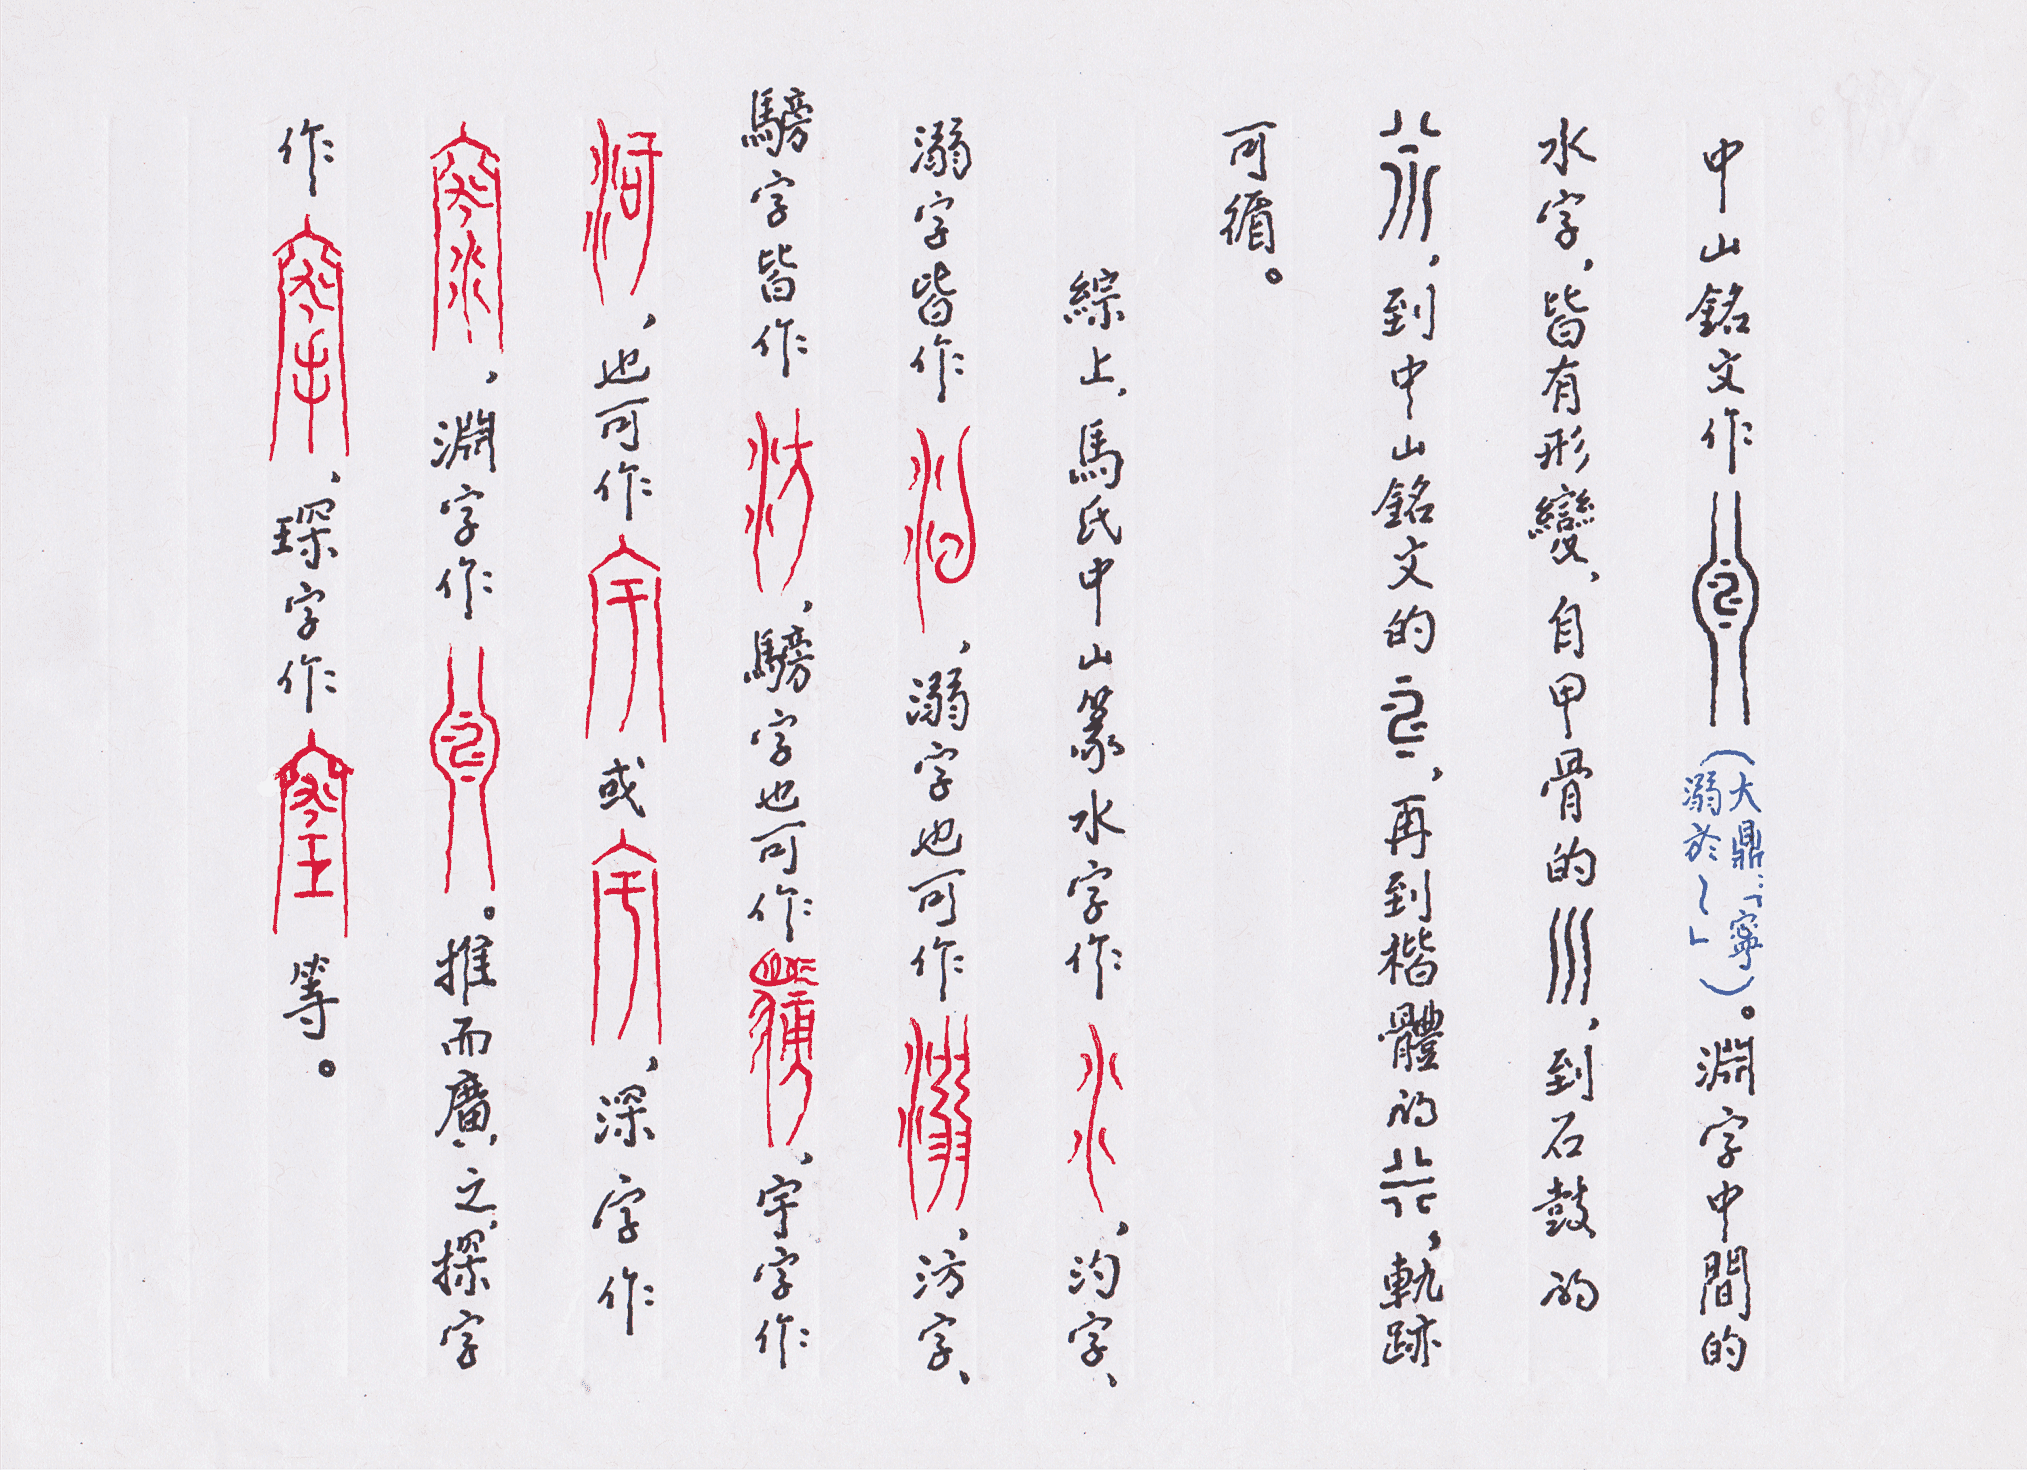 中山銘文作（大鼎：「寧溺於淵」）。淵字中間的
水字，皆有形變，自甲骨的，到石鼓的
，到中山銘文的，再到楷體的，軌跡
可循。
綜上，馬氏中山篆水字作，汋字、
溺字皆作，溺字也可作，汸字、
騯字皆作，騯字也可作，宇字作
，也可作或，深字作
，淵字作。推而廣之，探字
作，琛字作等。